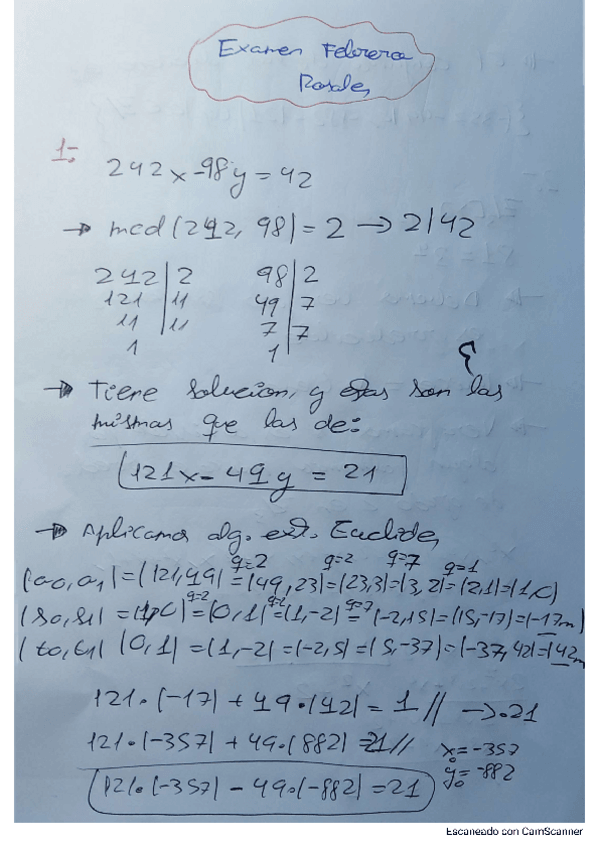 Examen Febrero
Rosales
1:
242x - 98y = 42
→ mcd(242, 98) = 2 → 2|42
242 | 2 98 | 2
121 | 11 49 | 7
11 | 11 7 | 7
1 1
→ Tiene solución, y estas son las
mismas que las de:
121x - 49y = 21
→ Aplicamos alg. ext. Euclides
q=2 q=2 q=7 q=1
(a0, a1) = (121, 49) = (49, 23) = (23, 3) = (3, 2) = (2, 1) = (1, 0)
q=2 q=2 q=7
(s0, s1) = (1, 0) = (0, 1) = (1, -2) = (-2, 15) = (15, -17) = (-17, m)
(t0, t1) (0, 1) = (1, -2) = (-2, 5) = (5, -37) = (-37, 42) = (42, m
121·(-17) + 49·(42) = 1 // → ·21
121·(-357) + 49·(882) = 21 // x0 = -357
y0 = -882
121·(-357) - 49·(-882) = 21
Escaneado con CamScanner